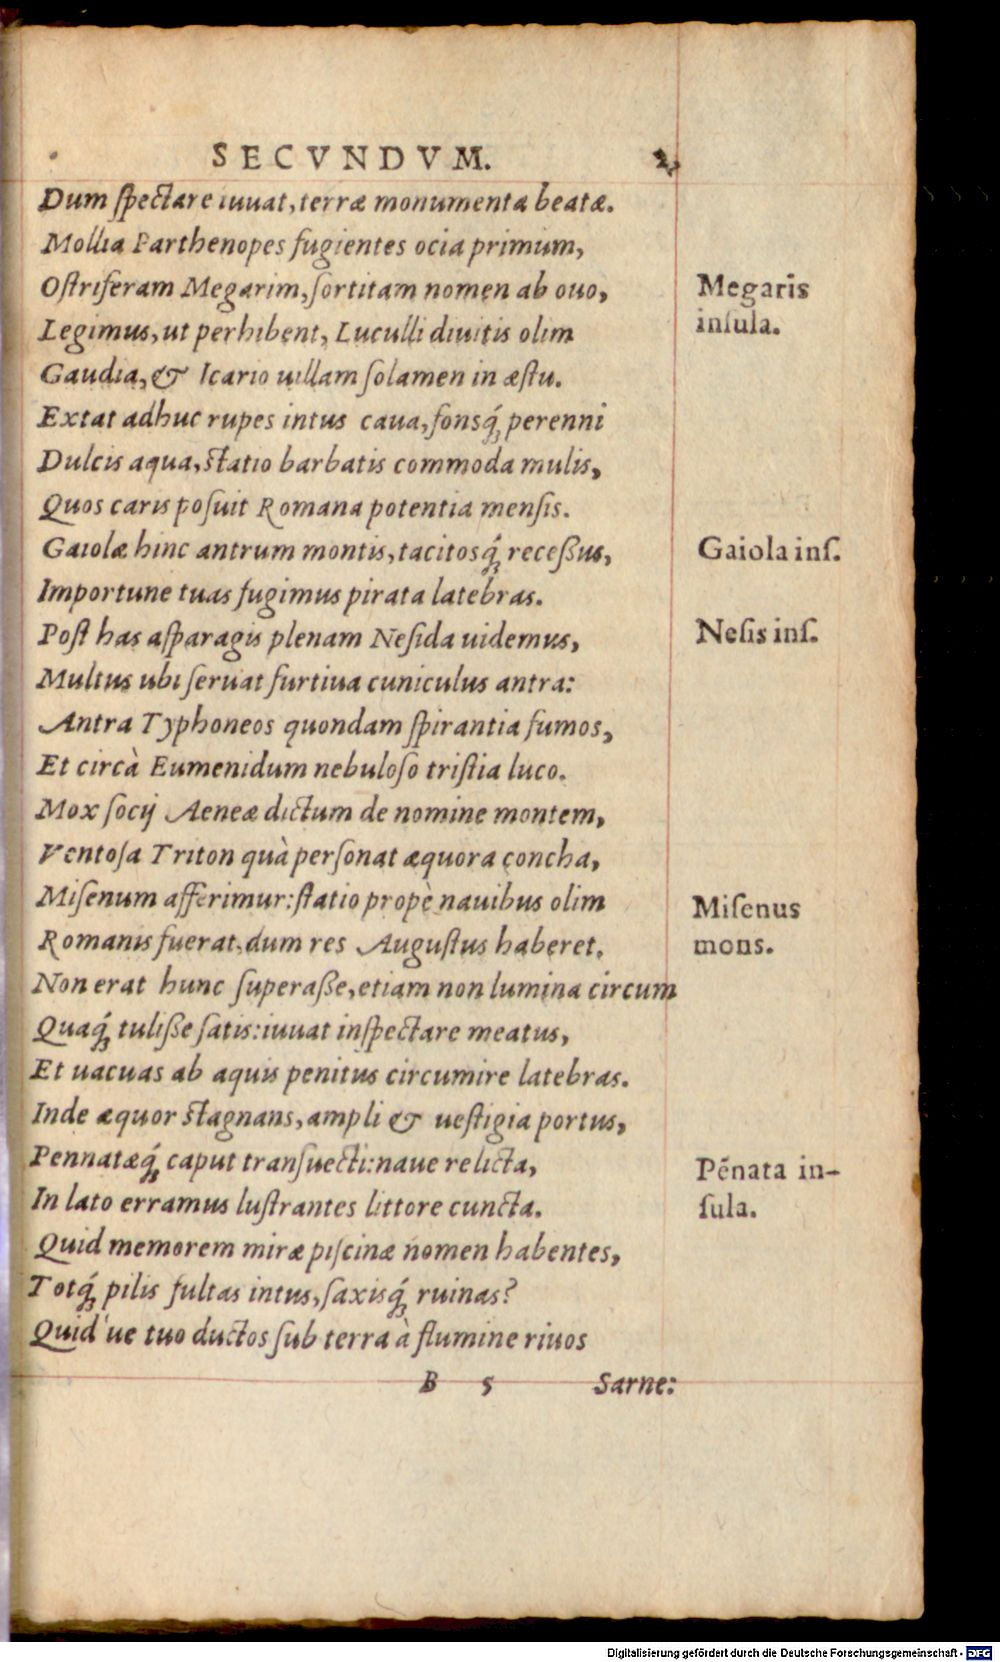 SECVNDVM.
Dum ſpectare iuuat, terræ monumenta beatæ.
Mollia Parthenopes fugientes ocia primum,
Oſtriferam Megarim, ſortitam nomen ab ouo,
Megaris
inſula.
Legimus, ut perhibent, Luculli diuitis olim
Gaudia, & Icario uillam ſolamen in æſtu.
Extat adhuc rupes intus caua, fonsq́; perenni
Dulcis aqua, ſtatio barbatis commoda mulis,
Quos caris poſuit Romana potentia menſis.
Gaiolæ hinc antrum montis, tacitosq́; receßus,
Gaiola inſ.
Importune tuas fugimus pirata latebras.
Poſt has aſparagis plenam Neſida uidemus,
Neſis inſ.
Multus ubi ſeruat furtiua cuniculus antra:
Antra Typhoneos quondam ſpirantia fumos,
Et circà Eumenidum nebuloſo triſtia luco.
Mox ſocij Aeneæ dictum de nomine montem,
Ventoſa Triton quà perſonat æquora concha,
Miſenum afferimur: ſtatio propè nauibus olim
Miſenus
mons.
Romanis fuerat, dum res Auguſtus haberet.
Non erat hunc ſuperaße, etiam non lumina circum
Quaq́; tuliße ſatis: iuuat inſpectare meatus,
Et uacuas ab aquis penitus circumire latebras.
Inde æquor ſtagnans, ampli & ueſtigia portus,
Pennatæq́; caput tranſuecti: naue relicta,
Pēnata in-
ſula.
In lato erramus luſtrantes littore cuncta.
Quid memorem miræ piſcinæ nomen habentes,
Totq́; pilis fultas intus, ſaxisq́; ruinas?
Quid'ue tuo ductos ſub terra à flumine riuos
B 5 Sarne:
Digitalisierung gefördert durch die Deutsche Forschungsgemeinschaft - DFG